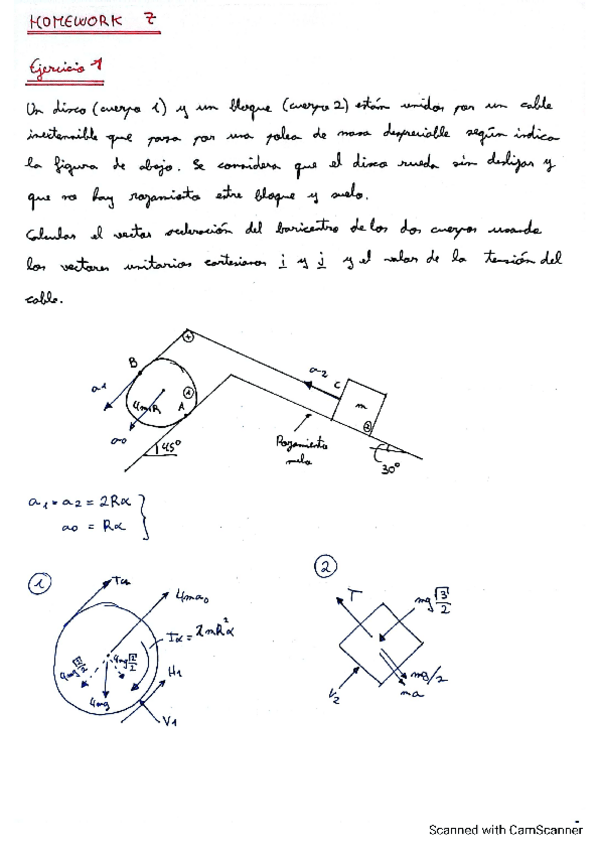 HOMEWORK 7
Ejercicio 1
Un disco (cuerpo 1) y un bloque (cuerpo 2) están unidos por un cable
inextensible que pasa por una polea de masa despreciable según indica
la figura de abajo. Se considera que el disco rueda sin deslizar y
que no hay rozamiento entre bloque y suelo.
Calcular el vector aceleración del baricentro de los dos cuerpos usando
los vectores unitarios cartesianos i y j y el valor de la tensión del
cable.
B
a1
4m,R
1
A
a0
45°
a2
C
m
2
Rozamiento
nulo
30°
a1 = a2 = 2Rα
a0 = Rα
1
4ma0
Iα = 2mR²α
4mg √2/2
4mg √2/2
4mg
H1
V1
2
T
mg √3/2
mg/2
ma
V2
Scanned with CamScanner